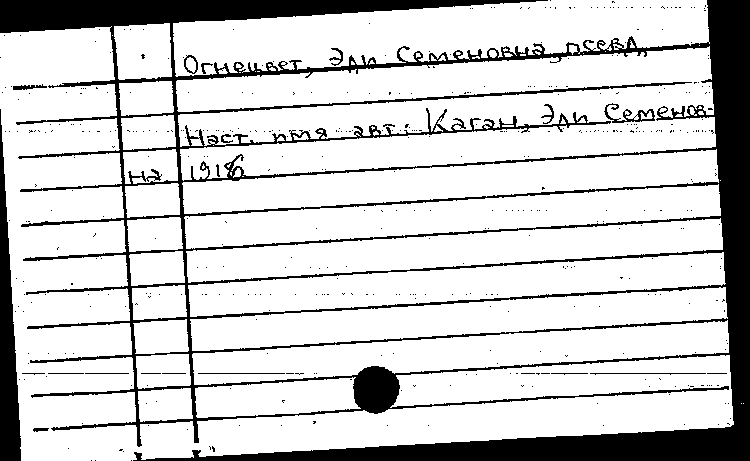 Огнецвет, Эди Семеновна, псевд.
Наст. имя авт: Каган, Эди Семенов-
на. 1916